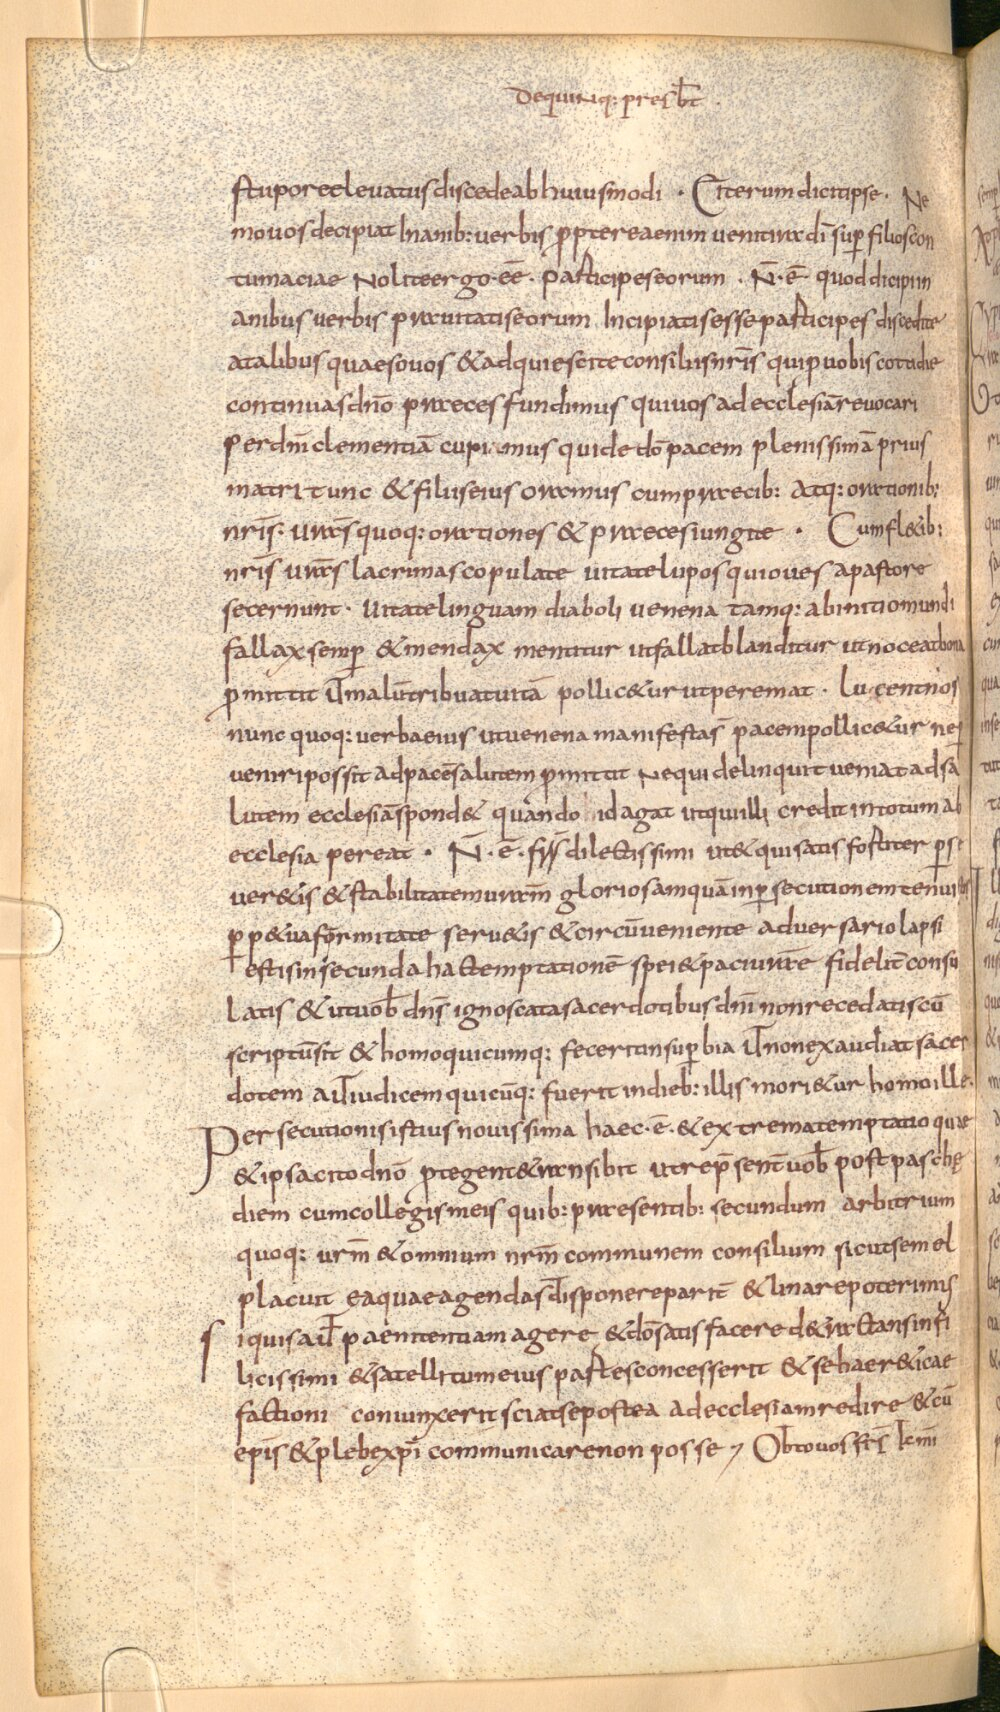 De quinq: pres bt̄
stupore elevatus discede ab huiusmodi · Et iterum dicit ipse · Ne
mo vos decipiat Inanib: verbis p̱pterea enim venit ira dī sup̱ filios con
tumaciae Nolite ergo · eē · participes eorum · N̄ · ē quod dicip in
anibus verbis pravitatis eorum Incipiatis esse participes discedite
a talibus quaeso vos & adquiescite consiliis nrīs qui p̱ vobis cottidie
continuas dnō praeces fundimus qui vos ad ecclesiā revocari
per dnī clementiā cupimus qui de dō pacem plenissimā prius
matri tunc & filiis eius oramus cum praecib: Atq: orationib:
nrīs · vrās quoq: orationes & praeces iungite · Cum fl&ib:
nrīs vrās lacrimas copulate vitate lupos qui oves a pastore
secernunt · vitate linguam diaboli venena tamq: ab initio mundi
fallax semp̱ & mendax mentitur ut fallat blanditur ut noceat bona
p̱mittit ut̄ malū tribuat vitā pollic&ur ut peremat · Lucent nos
nunc quoq: verba eius ut venena manifestas̄ pacem pollic&ur nep̱
veniri possit ad pacē salutem p̱mittit Ne qui delinquit veniat ad sa
lutem ecclesiā spond& quando id agat ut qui illi credit in totum ab
ecclesia pereat · N̄ · ē · frs̄ dilectissimi ut & qui satis fortiter p̱se
ver&is & stabilitatem vrām gloriosam quā in p̱secutionem tenuistis
p̱p&ua formitate serv&is & circūveniente adversario lapsi
estis in secunda hac temptationē spei & paci vrāe fidelit̄ consu
latis & ut vob̄ dns̄ ignoscat a sacerdotibus dnī non recedatis cū
scriptū sit & homo quicumq: fecerit in sup̱bia ut̄ non exaudiat sacer
dotem aut̄ iudicem quicūq: fuerit in dieb: illis mori&ur homo ille ·
Persecutionis istius novissima haec · ē · & extrema temptatio quae
& ipsa cito dnō p̱tegent& ransibit ut rep̄sent̄ vob̄ post paschę
diem cum collegis meis quib: praesentib: secundum arbitrium
quoq: vrm̄ & omnium nrm̄ communem consilium sicut semel
placuit ea quae agenda st̄ disponere parit̄ & linare poterimus
siquis aut̄ paenitentiam agere & dō satis facere d&ractans in fi
licissimi & satellitum eius partes concesserit & se haer&icae
factioni coniunxerit sciat se postea ad ecclesiam redire & cū
epis̄ & plebe xpī communicare non posse ; Obto vos frs̄